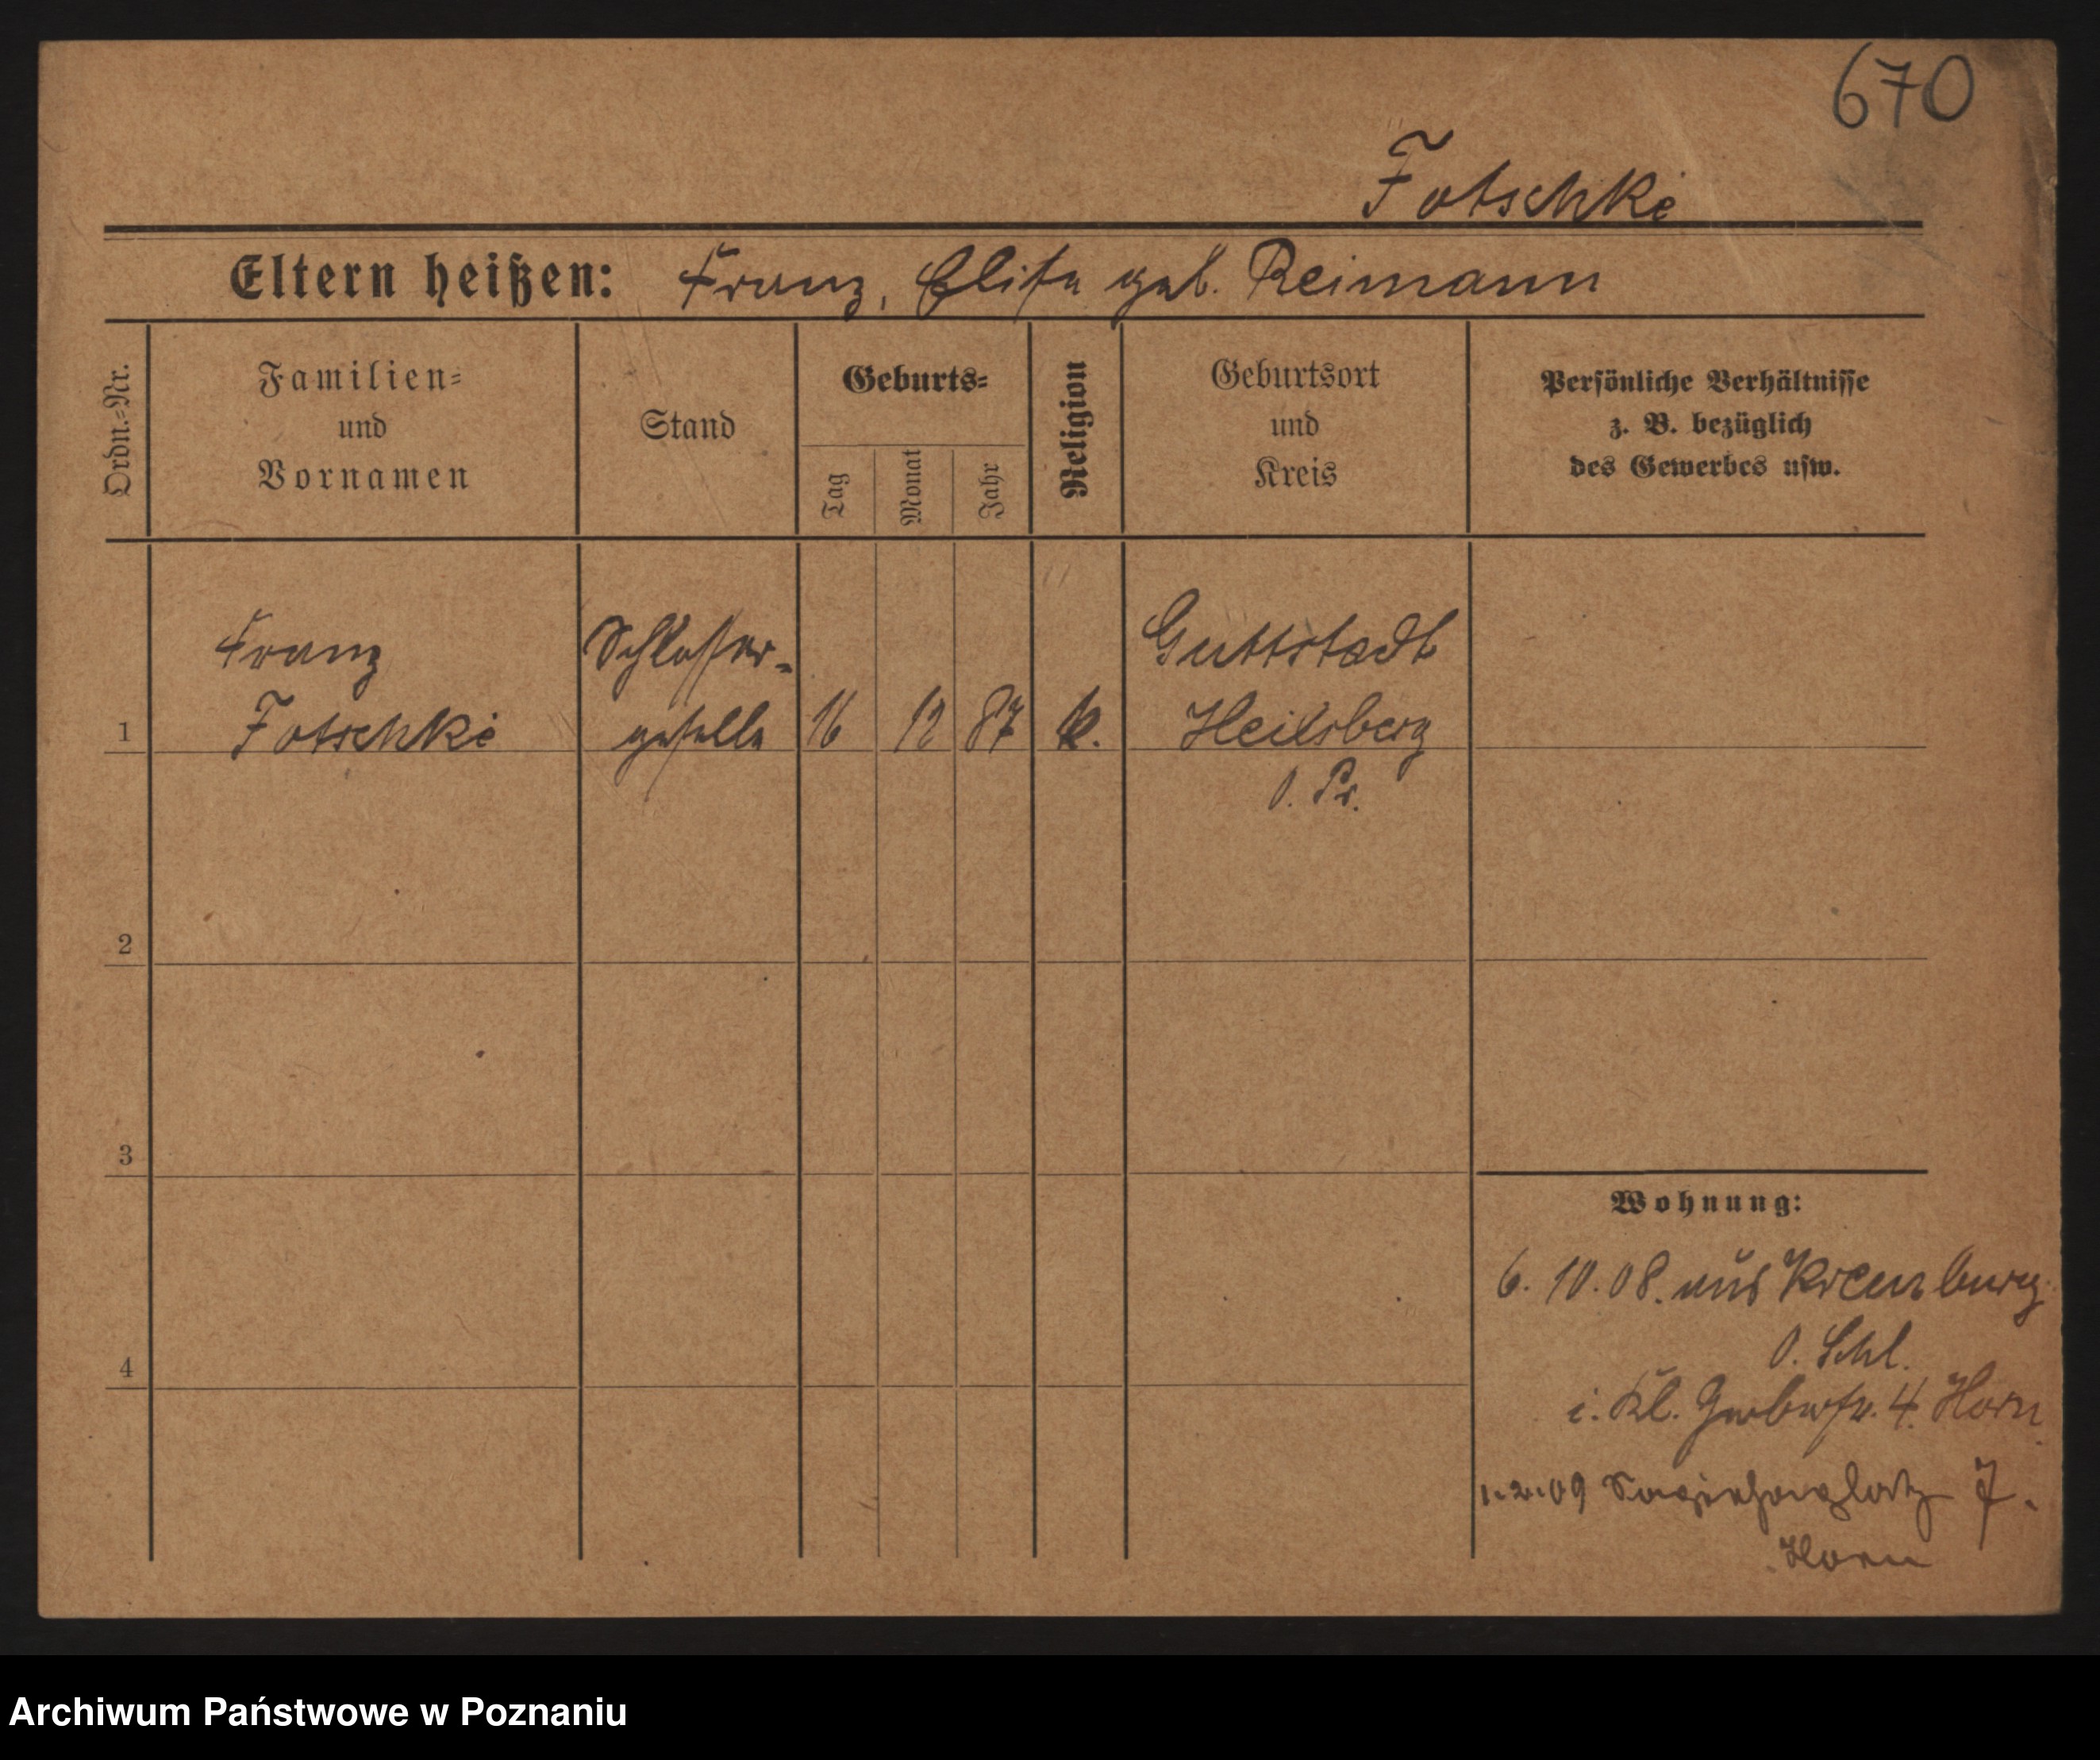 670
Fotschki
Eltern heißen: Franz, Elise geb. Reimann
Ordn.=Nr.
Familien=
und
Vornamen
Stand
Geburts=
Tag
Monat
Jahr
Religion
Geburtsort
und
Kreis
Persönliche Verhältnisse
z. B. bezüglich
des Gewerbes usw.
Franz Schlosser- Guttstadt
1 Fotschki geselle 16 12 87 k. Heilsberg
O. Pr.
2
3
Wohnung:
6. 10. 08. aus Kreuzburg
O. Schl.
4
i. Kl. Gerberstr. 4. Horn
1.2.09 Sapiehaplatz 7.
Horn
Archiwum Państwowe w Poznaniu